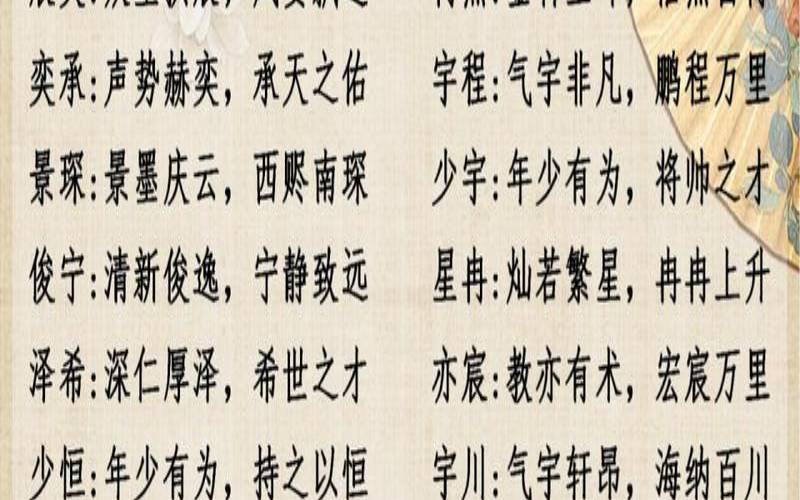 奕承:声势赫奕，承天之佑
宇程:气宇非凡，鹏程万里
景琛:景墨庆云，西赆南琛
少宇:年少有为，将帅之才
俊宁:清新俊逸，宁静致远
星冉:灿若繁星，冉冉上升
泽希:深仁厚泽，希世之才
亦宸:教亦有术，宏宸万里
少恒:年少有为，持之以恒
宇川:气宇轩昂，海纳百川